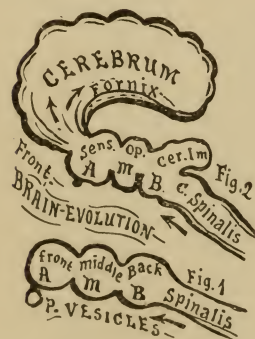 CEREBRUM
Fornix
Sens. Op. Cer.Im
A m B. C. Spinalis
Fig. 2
Front.
BRAIN-EVOLUTION
Fig. 1
front middle Back
A m B Spinalis
P. VESICLES